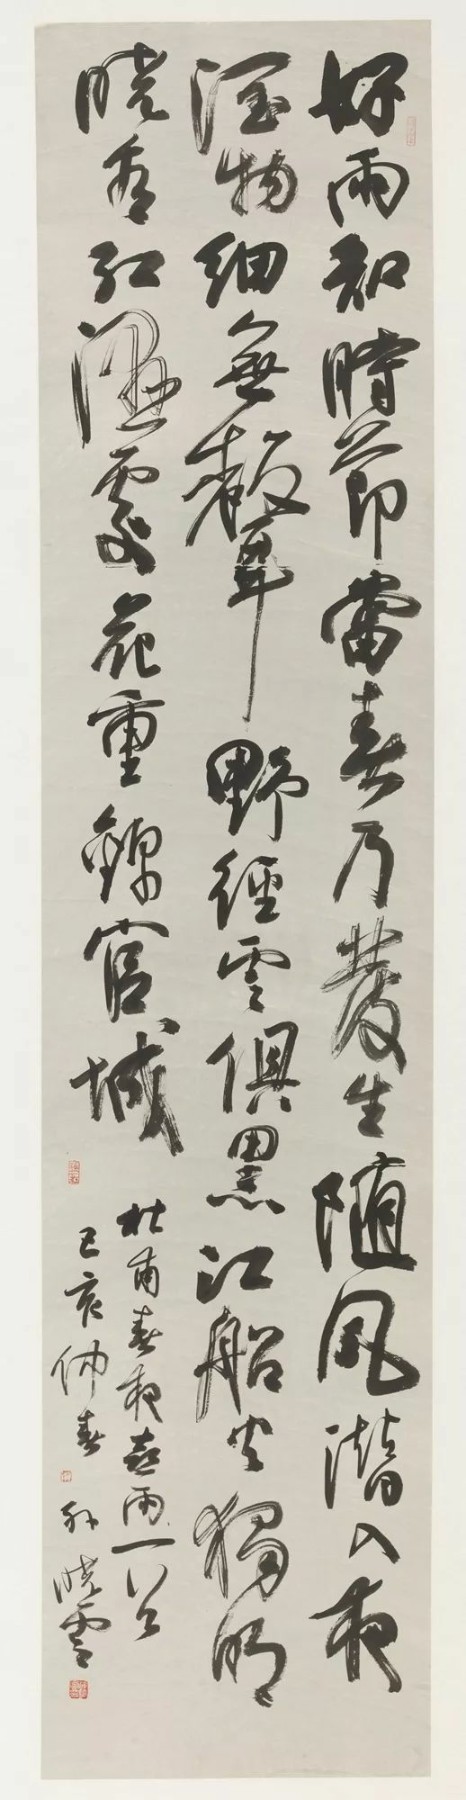 好雨知時節當春乃發生随風潛入夜
潤物細無聲野徑雲俱黑江船火獨明
曉看紅濕處花重錦官城
杜甫春夜喜雨一首
己亥仲春孙曉雲